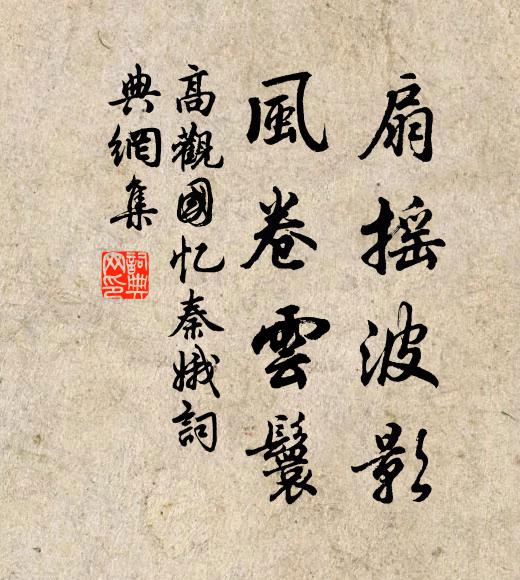 扇摇波影
風卷雲鬟
高觀國忆秦娥詞
典網集
詞典
网印